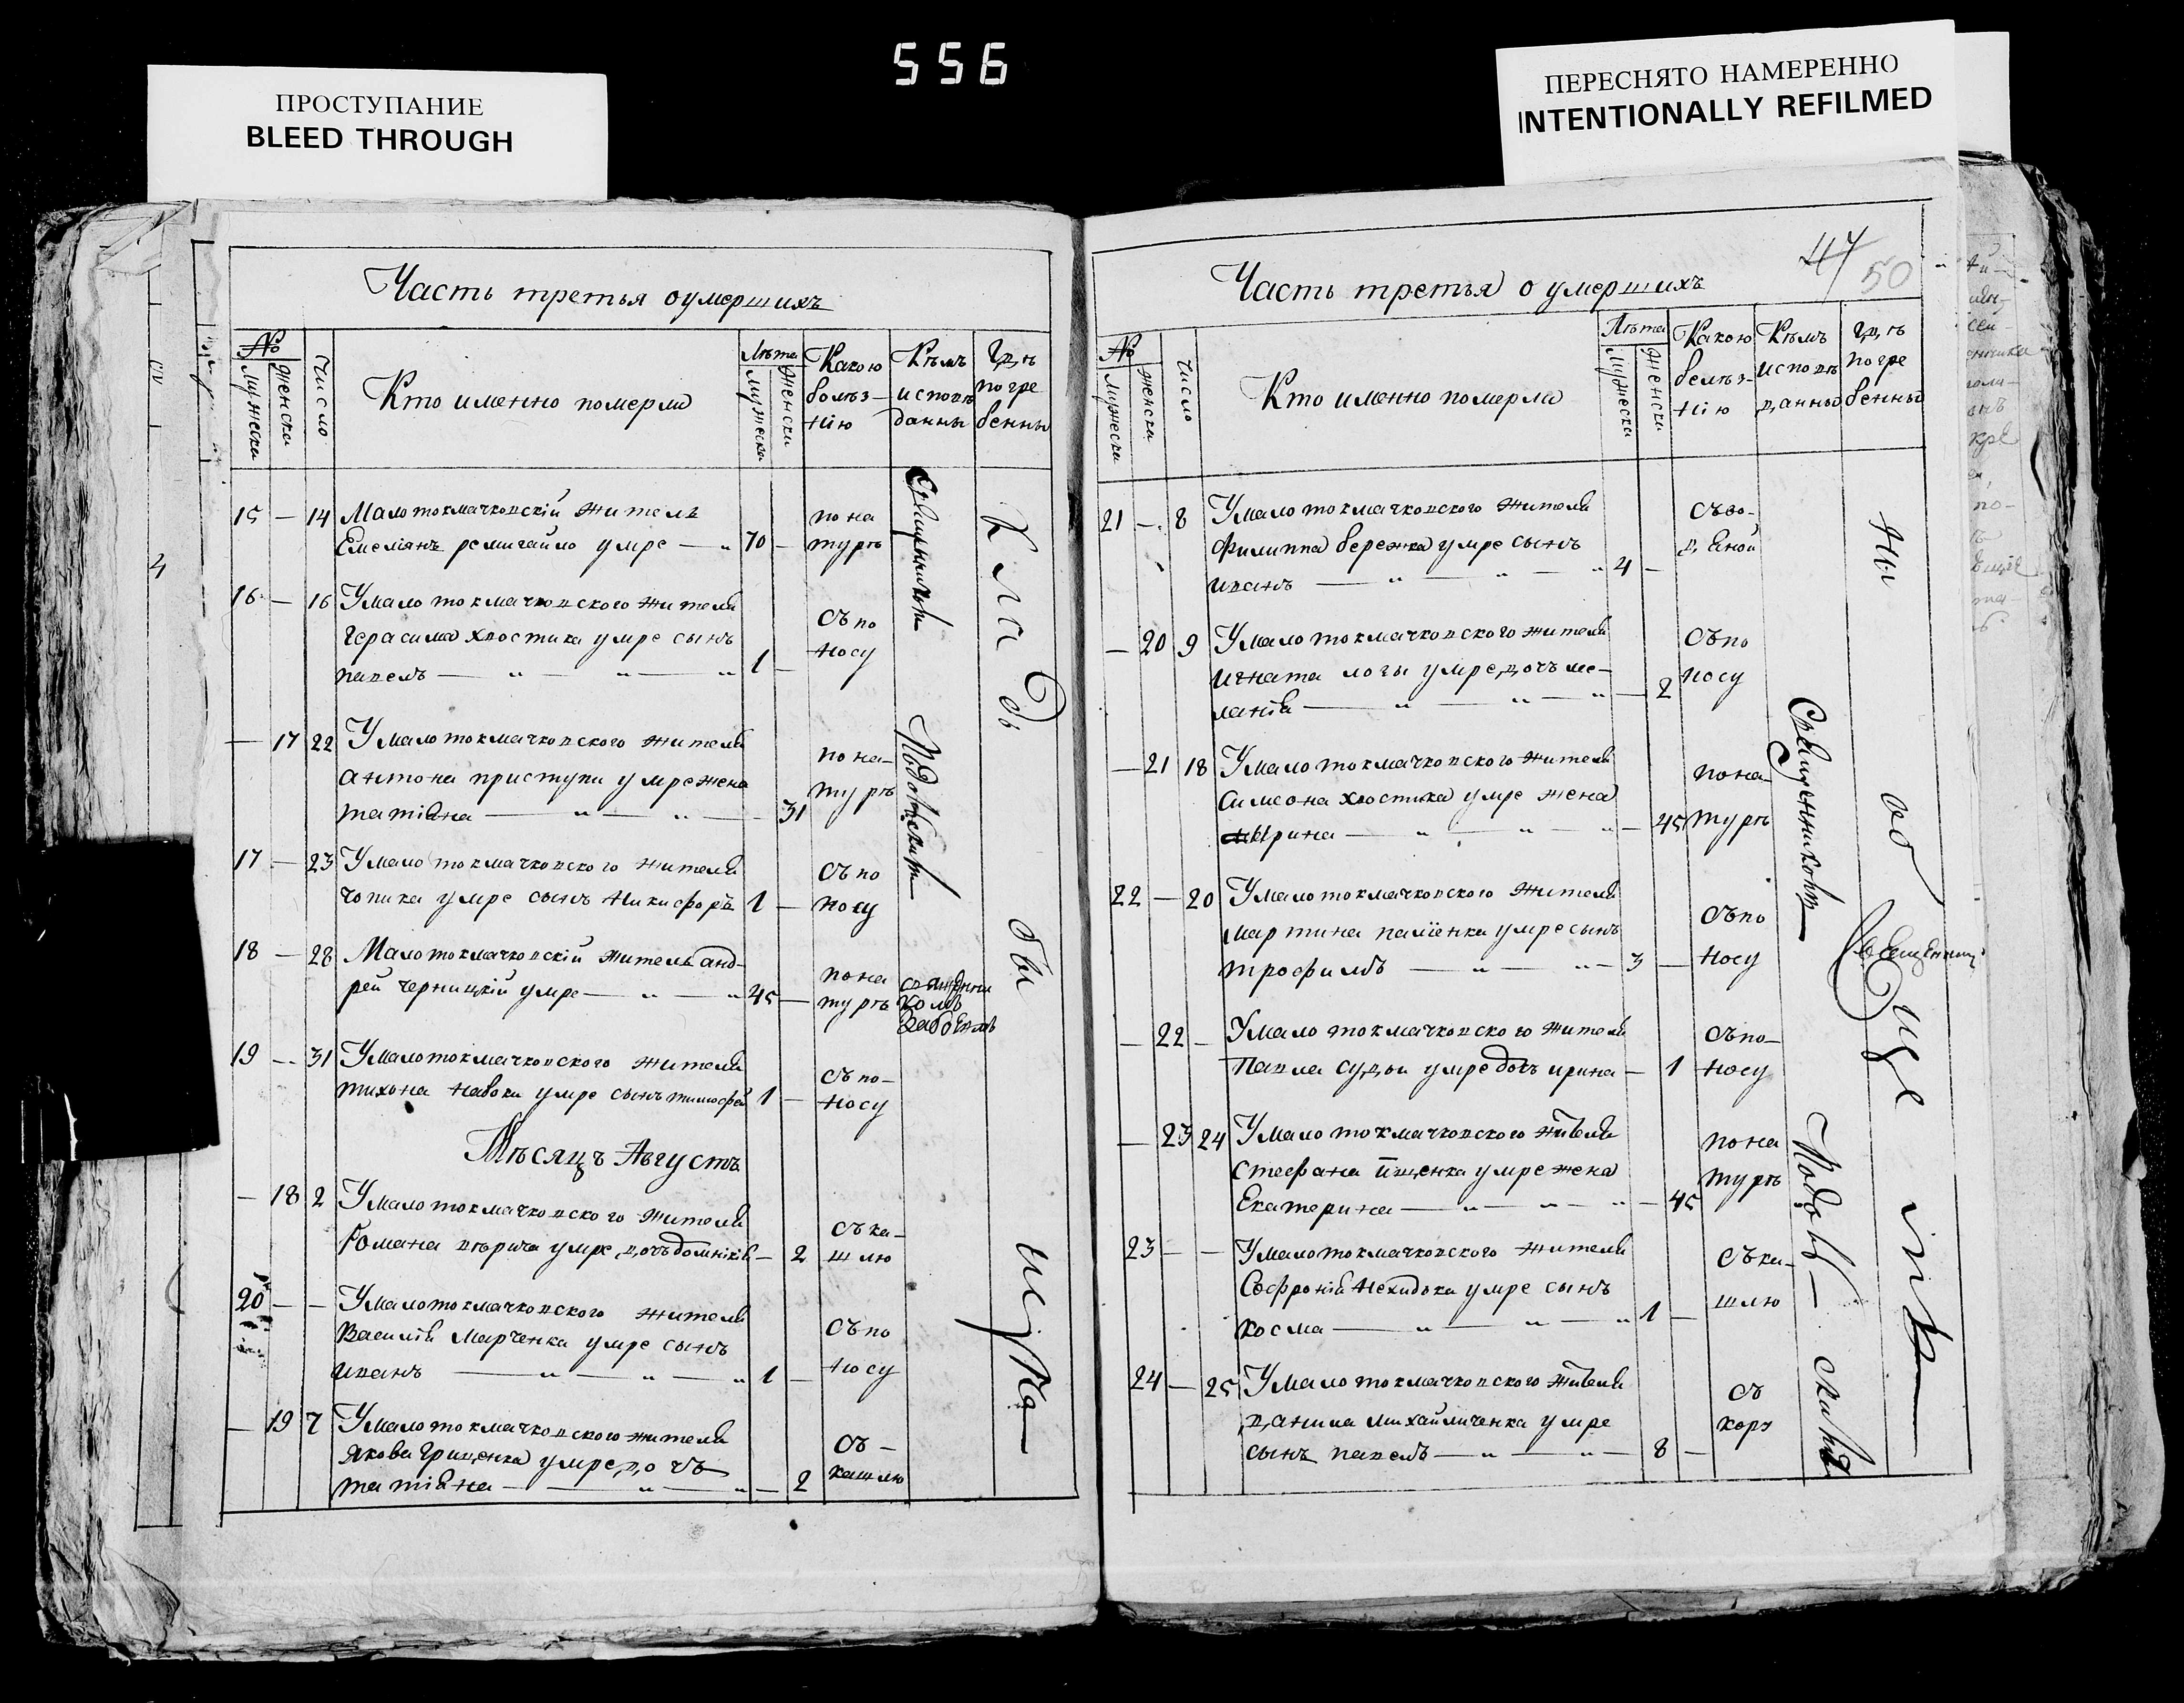 556
ПРОСТУПАНИЕ
BLEED THROUGH
ПЕРЕСНЯТО НАМЕРЕННО
INTENTIONALLY REFILMED
Часть третья о умершихъ
№
мужески
женски
число
Кто именно померли
Лѣта
мужески
женски
Какою
болѣз-
нію
Кѣмъ
исповѣ
данны
Гдѣ
погре
бенны
15 — 14 Малотокмачковскій житель
Емеліянъ ремигайло умре — " 70 —
по на
турѣ
16 — 16 Умалотокмачковского жителя
Герасима хвостика умре сынъ
павелъ — " — " — " 1 —
съ по
носу
— 17 22 Умалотокмачковского жителя
антона приступи умре жена
татіана — " — " — 31
по на-
турѣ
17 — 23 Умалотокмачковского жителя
чопика умре сынъ никифоръ 1 —
съ по
носу
18 — 28 Малотокмачковскій житель анд-
рей черницкій умре — " — " 45 —
по на
турѣ
19 — 31 Умалотокмачковского жителя
тихона навоки умре сынъ тимофей 1 —
съ по-
носу
Мѣсяцъ Августъ
— 18 2 Умалотокмачковского жителя
Романа умре дочъ домникія — 2
съ ка-
шлю
20 — — Умалотокмачковского жителя
Василія Марченка умре сынъ
иванъ — " — " — " 1 —
съ по
носу
— 19 7 Умалотокмачковского жителя
Якова Гриценка умре дочъ
татіана — — " — " — 2
съ —
кашлю
Священникомъ
Кладбы
Часть третья о умершихъ
47
50
№
мужески
женски
число
Кто именно померли
Лѣта
мужески
женски
Какою
болѣз-
нію
Кѣмъ
исповѣ
данны
Гдѣ
погре
бенны
21 — 8 Умалотокмачковского жителя
Филиппа бережка умре сынъ
иванъ — " — " — " 4 —
съ во-
дяной
— 20 9 Умалотокмачковского жителя
игната логы умре дочъ ме-
ланія — " — " — " — 2
съ по
носу
— 21 18 Умалотокмачковского жителя
симеона хвостика умре жена
Ирина — " — " — " — 45
по на
турѣ
22 — 20 Умалотокмачковского жителя
мартина умре сынъ
трофимъ — " — " — 3 —
съ по
носу
— 22 — Умалотокмачковского жителя
павла судьи умре дочъ ирина — 1
съ по-
носу
— 23 24 Умалотокмачковского жителя
стефана умре жена
Екатерина — " — " — 45
по на
турѣ
23 — — Умалотокмачковского жителя
Софронія нехидька умре сынъ
косма — " — " — " 1 —
съ ка-
шлю
24 — 25 Умалотокмачковского жителя
данила михайличенка умре
сынъ павелъ — " — " — 8 —
съ
кору
Священникомъ